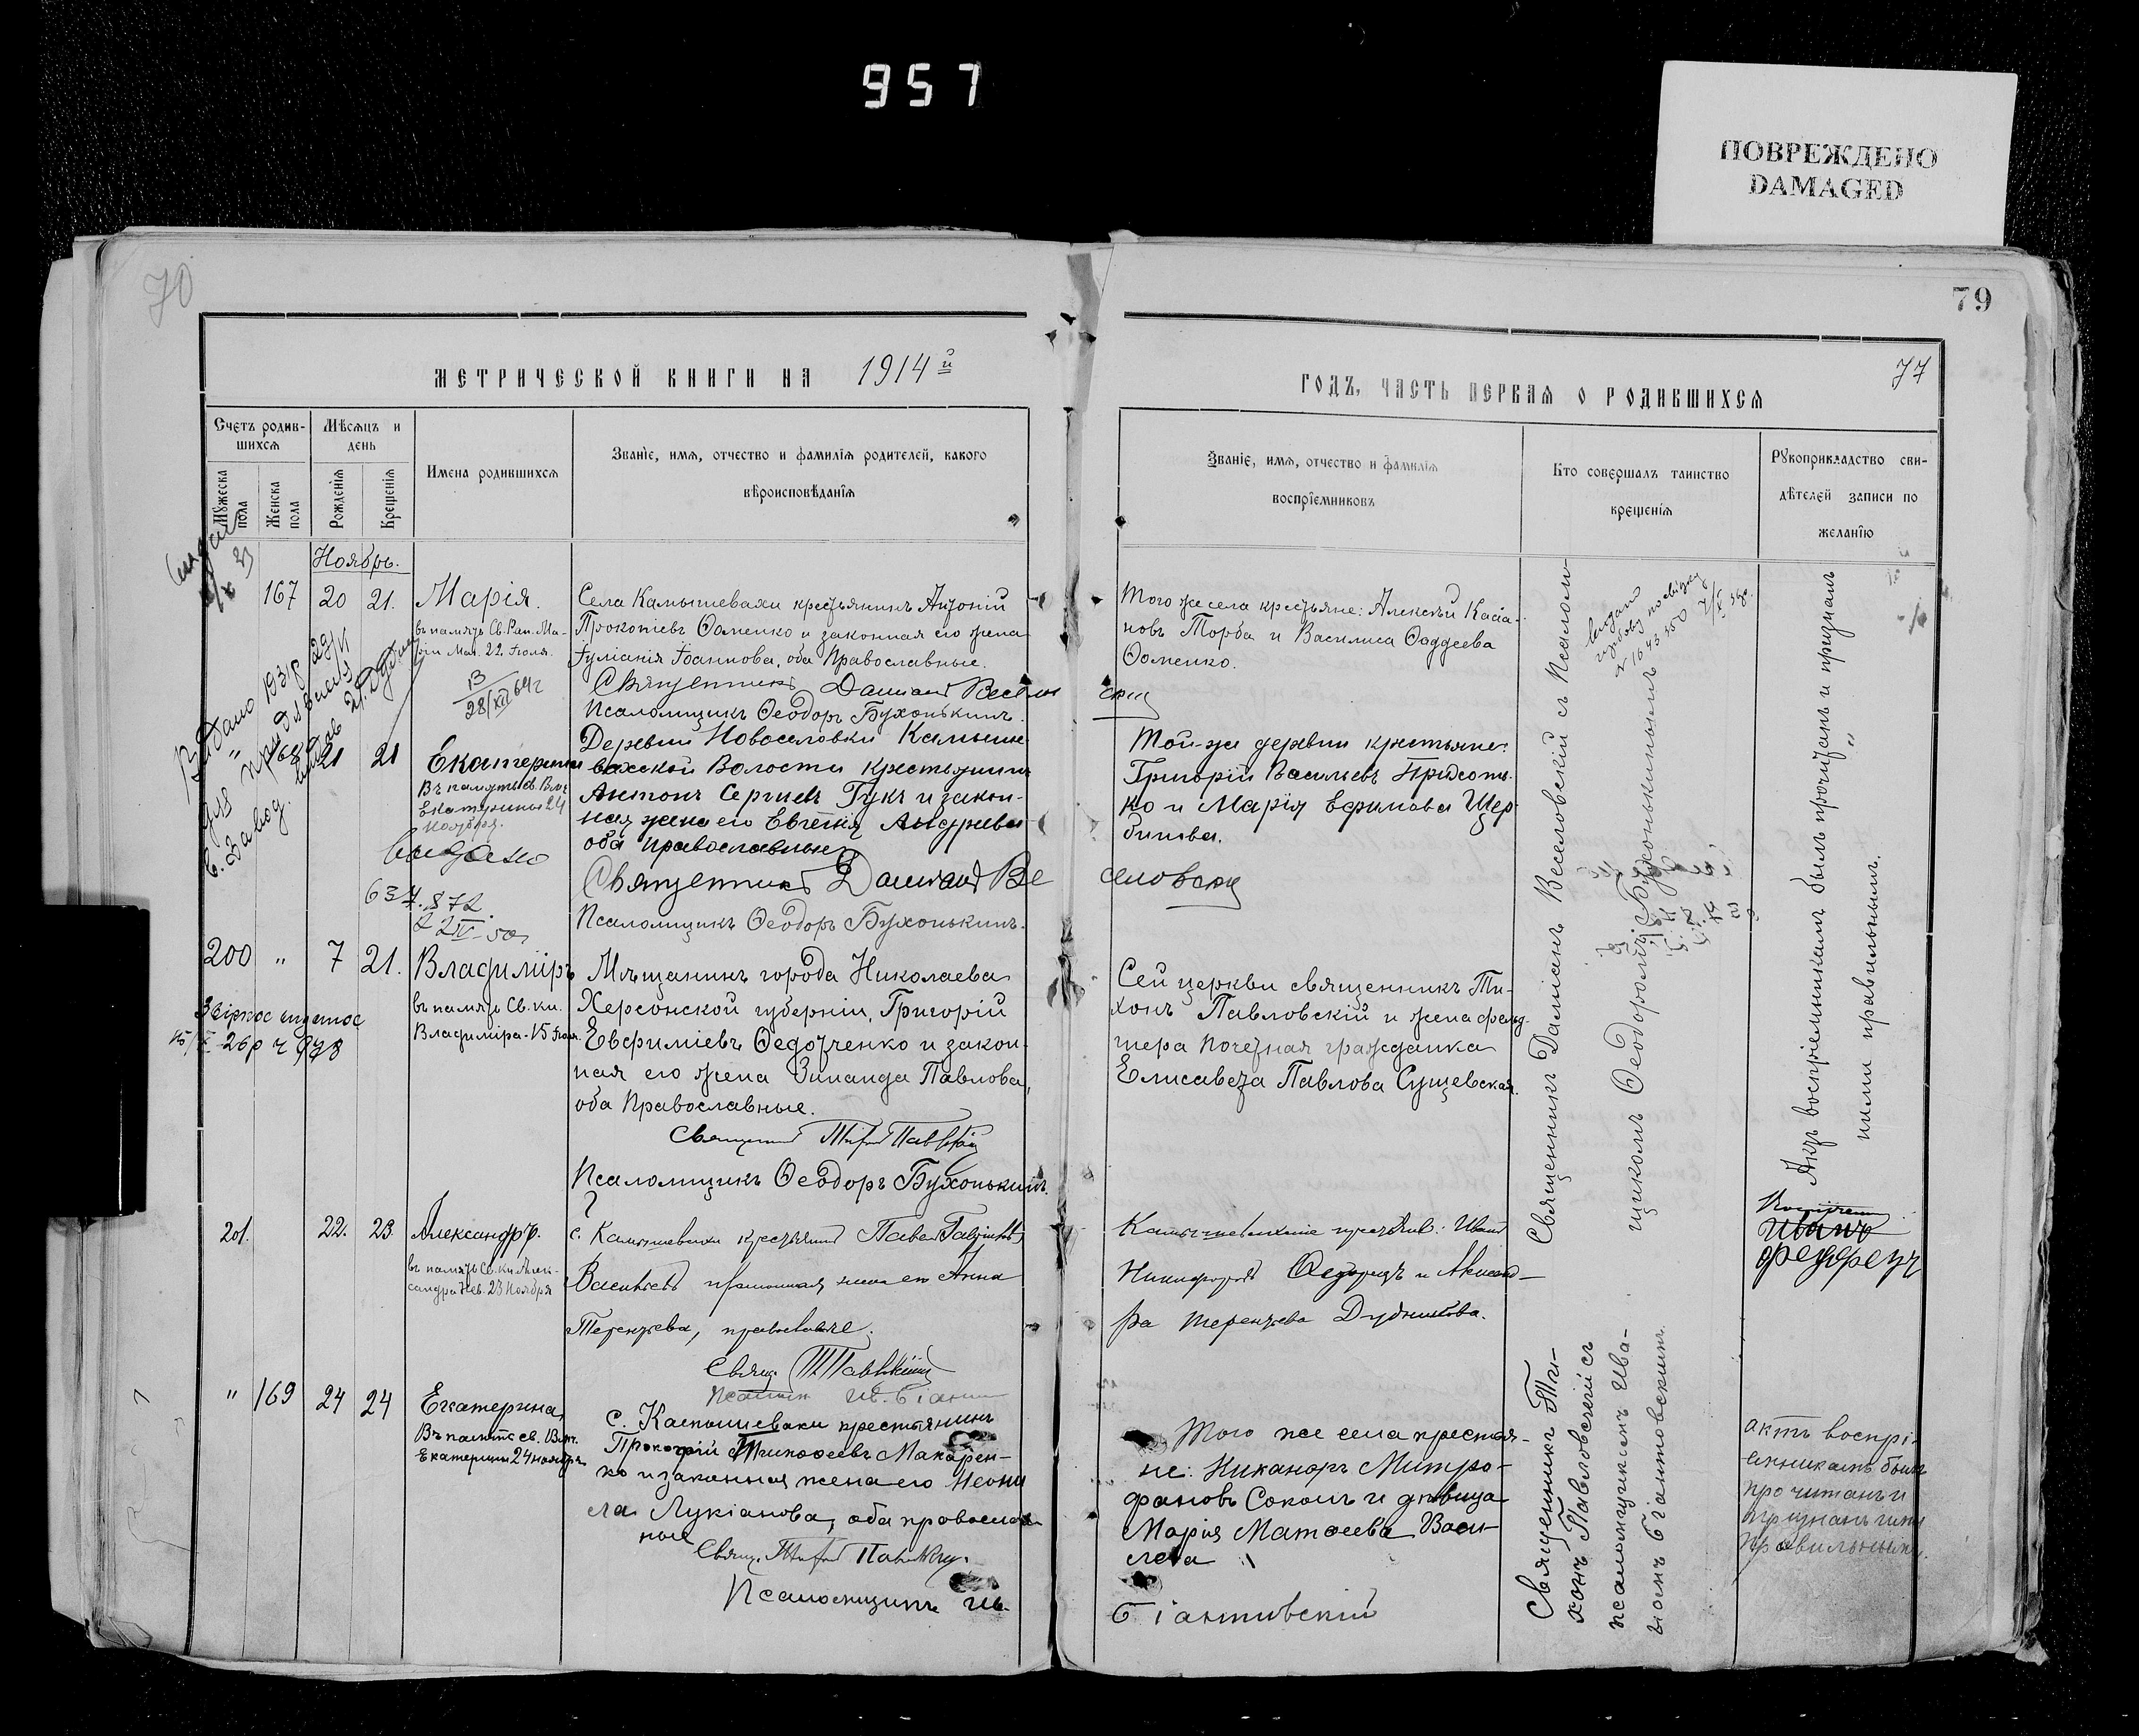 957
ПОВРЕЖДЕНО
DAMAGED
70
79
77
МЕТРИЧЕСКОЙ КНИГИ НА 1914й
ГОДЪ, ЧАСТЬ ПЕРВАЯ О РОДИВШИХСЯ
Счетъ родив-
шихся
Мужеска пола
Женска пола
Мѣсяцъ и
день
Рожденія
Крещенія
Имена родившихся
Званіе, имя, отчество и фамилія родителей, какого
вѣроисповѣданія
Званіе, имя, отчество и фамилія
воспріемниковъ
Кто совершалъ таинство
крещенія
Рукоприкладство сви-
дѣтелей записи по
желанію
Ноябрь.
167 20 21. Марія.
въ память Св. Рав. Ма-
ріи Маг. 22 Іюля.
Села Камышевахи крестьянинъ Антоній
Прокопіевъ Ѳоменко и законная его жена
Іуліанія Іоаннова, оба Православные.
Священникъ Даміанъ Веселов
ский
Псаломщикъ Ѳеодоръ Бухонькинъ.
Того же села крестьяне: Алексѣй Касіа-
новъ Торба и Василиса Ѳаддеева
Ѳоменко.
28/XII 64г
168 21 21 Екатерина
Въ память св. Вмц.
Екатерины 24
ноября.
Деревни Новоселовки Камыше-
вахской Волости крестьянинъ
Антонъ Сергиевъ Гукъ и закон-
ная жена его Евгенія Андреева
оба православные
Священникъ Даміанъ Ве
селовский
Псаломщикъ Ѳеодоръ Бухонькинъ.
Той-же деревни крестьяне:
Григорій Васильевъ
ко и Марія Ефимова Щер-
бинова.
Видано
200 " 7 21. Владиміръ
въ память Св. кн.
Владиміра - 15 Іюля.
Мѣщанинъ города Николаева
Херсонской губерніи, Григорій
Евфиміевъ Ѳедотченко и закон-
ная его жена Зинаида Павлова,
оба Православные.
Священникъ Тихонъ Павловскій
Псаломщикъ Ѳеодоръ Бухонькинъ.
Сей церкви священникъ Ти-
хонъ Павловскій и жена фельд-
шера почетная гражданка
Елисавета Павлова Сущевская.
201. 22. 23. Александръ.
въ память Св. кн. Алек-
сандра Нев. 23 Ноября
с. Камышевахи крестьянинъ Павелъ
Васильевъ и законная жена его Анна
Терентьева, православные.
Свящ. Т Павловскій
Камышевахские крестьяне: Иванъ
Никифоровъ и Александ-
ра Терентьева Дудникова.
" 169 24 24 Екатерина,
Въ память св. Вмч.
Екатерины 24 ноября
с. Камышеваки крестьянинъ
Прокопій Тимофеевъ Макарен-
ко и законная жена его Неони
ла Лукіанова, оба православ
ные
Свящ. Тихонъ Павловскій.
Псаломщикъ Ив.
Біантовскій
Того же села крестья-
не: Никаноръ Митро-
фановъ Соколъ и дѣвица
Марія Матфеева Васи-
лева
Священникъ Даміанъ Веселовскій съ Псалом-
щикомъ Ѳеодоромъ Бухонькинымъ
Священникъ Ти-
хонъ Павловский съ
псаломщикомъ Ива-
номъ Біантовскимъ.
Актъ воспріемникамъ былъ прочитанъ и признанъ
ними правильнымъ.
актъ воспрі-
емникамъ былъ
прочитанъ и
признанъ ими
правильнымъ.